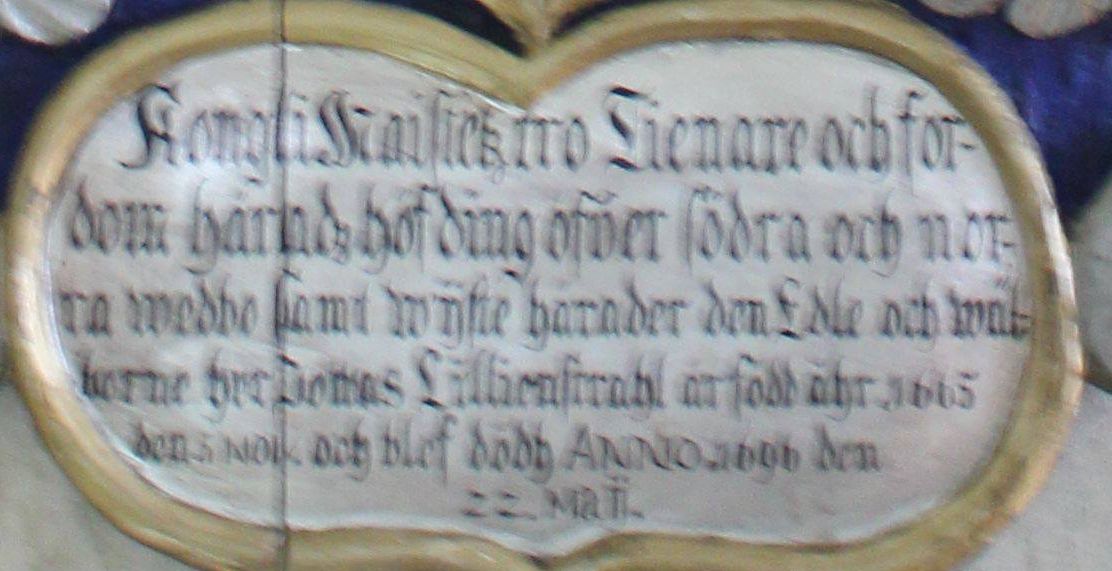 Kongli Maiſtetz tro Tienare och for-
dom häradz höfding öfver ſödra och nor-
ra wedbo ſamt wÿſte härader den Edle och wäl-
borne her Tomas Lillienſtrahl är född åhr 1665
den 5 NOV. och blef dödh ANNO 1696 den
22. Maÿ.